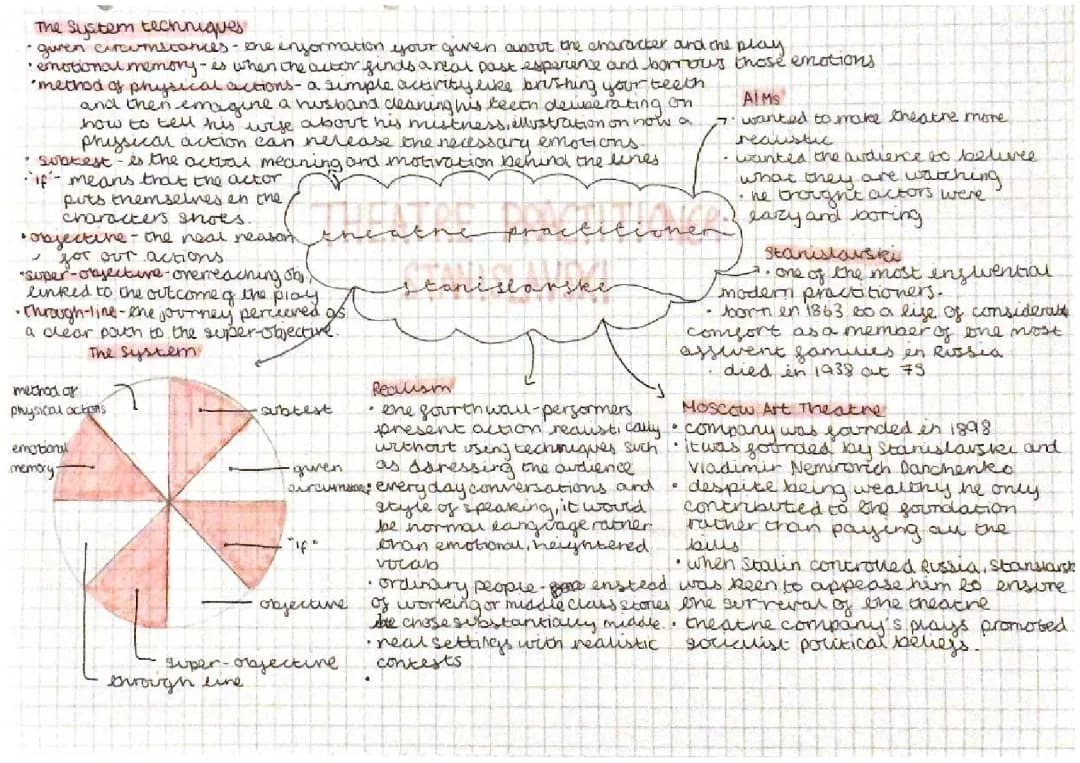 The System techniques
· given circumstances - the information your given about the character and the play
· emotional memory - is when the actor finds a real past experence and borrows those emotions
· method of physical actions - a simple activity like brushing your teeth
and then emagine a husband cleaning his teeth deliberating on
how to tell his wise about his mistness, illustration on how a
physical action can release the necessary emotions.
· subtext - is the actual meaning and motivation behind the lines
· "if" - means that the actor
puts themselves in the
characters shoes.
· objective - the real reason
for our actions
· super-objective - overreaching obj,
linked to the outcome of the play
· through-line - the journey percieved as
a clear path to the super-objective.
AIMs
· wanted to make theatre more
realistic
· wanted the audience to believe
what they are watching
· he thought actors were
lazy and boring
THEATRE PRACTITIONER
theatre practitioner
STANISLAVSKI
stanislavski
Stanislavski
· one of the most influential
modern practitioners.
· born in 1863 to a life of considerable
comfort as a member of one most
affluent families in Russia
· died in 1938 at 75
The System
method of
physical actions
emotional
memory
subtext
given
circumstances
"if"
objective
super-objective
through line
Realism
· the fourth wall - performers
present action realistically
without using techniques such
as adressing the audience
· everyday conversations and
style of speaking, it would
be normal language rather
than emotional, heightened
vocab
· ordinary people - instead
of working or middle class stories
he chose substantially middle.
· real settings with realistic
contexts
·
Moscow Art Theatre
· company was founded in 1898
· it was founded by Stanislavski and
Vladimir Nemirovich Danchenko
· despite being wealthy he only
contributed to the foundation
rather than paying all the
bills
· when Stalin controlled Russia, Stanislavski
was keen to appease him to ensure
the survival of the theatre
· theatre company's plays promoted
socialist political beliefs.